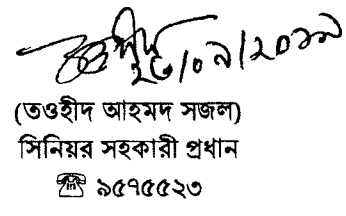 ২৩/০৯/২০১৯
(তওহীদ আহমদ সজল)
সিনিয়র সহকারী প্রধান
☎ ৯৫৭৫৫২৩